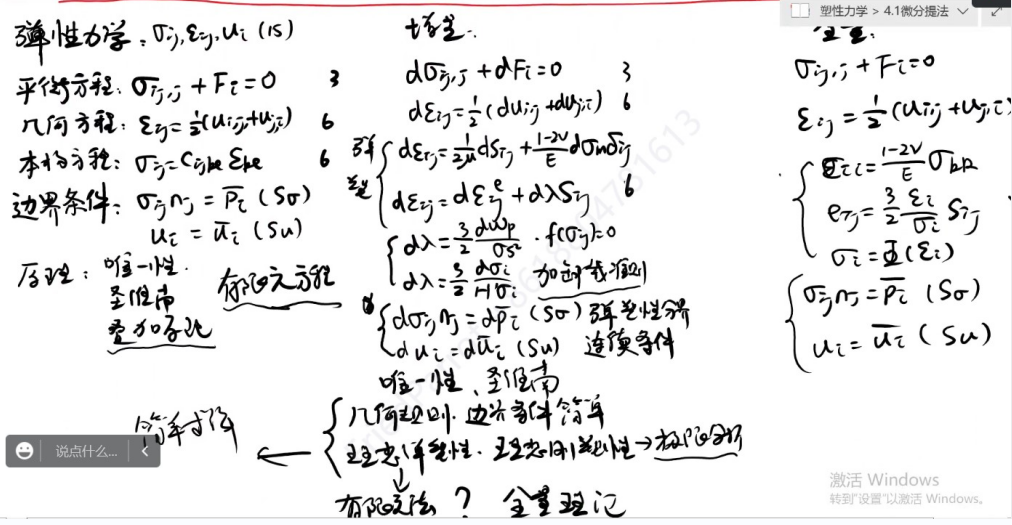 塑性力学 > 4.1微分提法
弹性力学: σij, εij, ui (15)
平衡方程: σij,j + Fi = 0 3
几何方程: εij = 1/2(ui,j + uj,i) 6
本构方程: σij = Cijkl εkl 6
边界条件: σij nj = p̄i (Sσ)
ui = ūi (Su)
原理: 唯一性.
圣维南
叠加原理
有限元方程
增量:
dσij,j + dFi = 0 3
dεij = 1/2(dui,j + duj,i) 6
弹 deij = 1/2μ dSij + 1-2ν/E dσm δij
塑 dεij = dεij^e + dλSij 6
dλ = 3/2 dWp/σs² · f(σij) = 0
dλ = 3/2 dσi/H'σi 加卸载准则
dσij nj = dp̄i (Sσ) 弹塑性分界
dui = dūi (Su) 连续条件
唯一性、圣维南
几何规则. 边界条件简单
理想弹塑性. 理想刚塑性 → 极限分析
简单求解
有限元法 ? 全量理论
全量:
σij,j + Fi = 0
εij = 1/2(ui,j + uj,i)
εii = 1-2ν/E σkk
eij = 3/2 εi/σi Sij
σi = Φ(εi)
σij nj = p̄i (Sσ)
ui = ūi (Su)
说点什么...
激活 Windows
转到"设置"以激活 Windows。